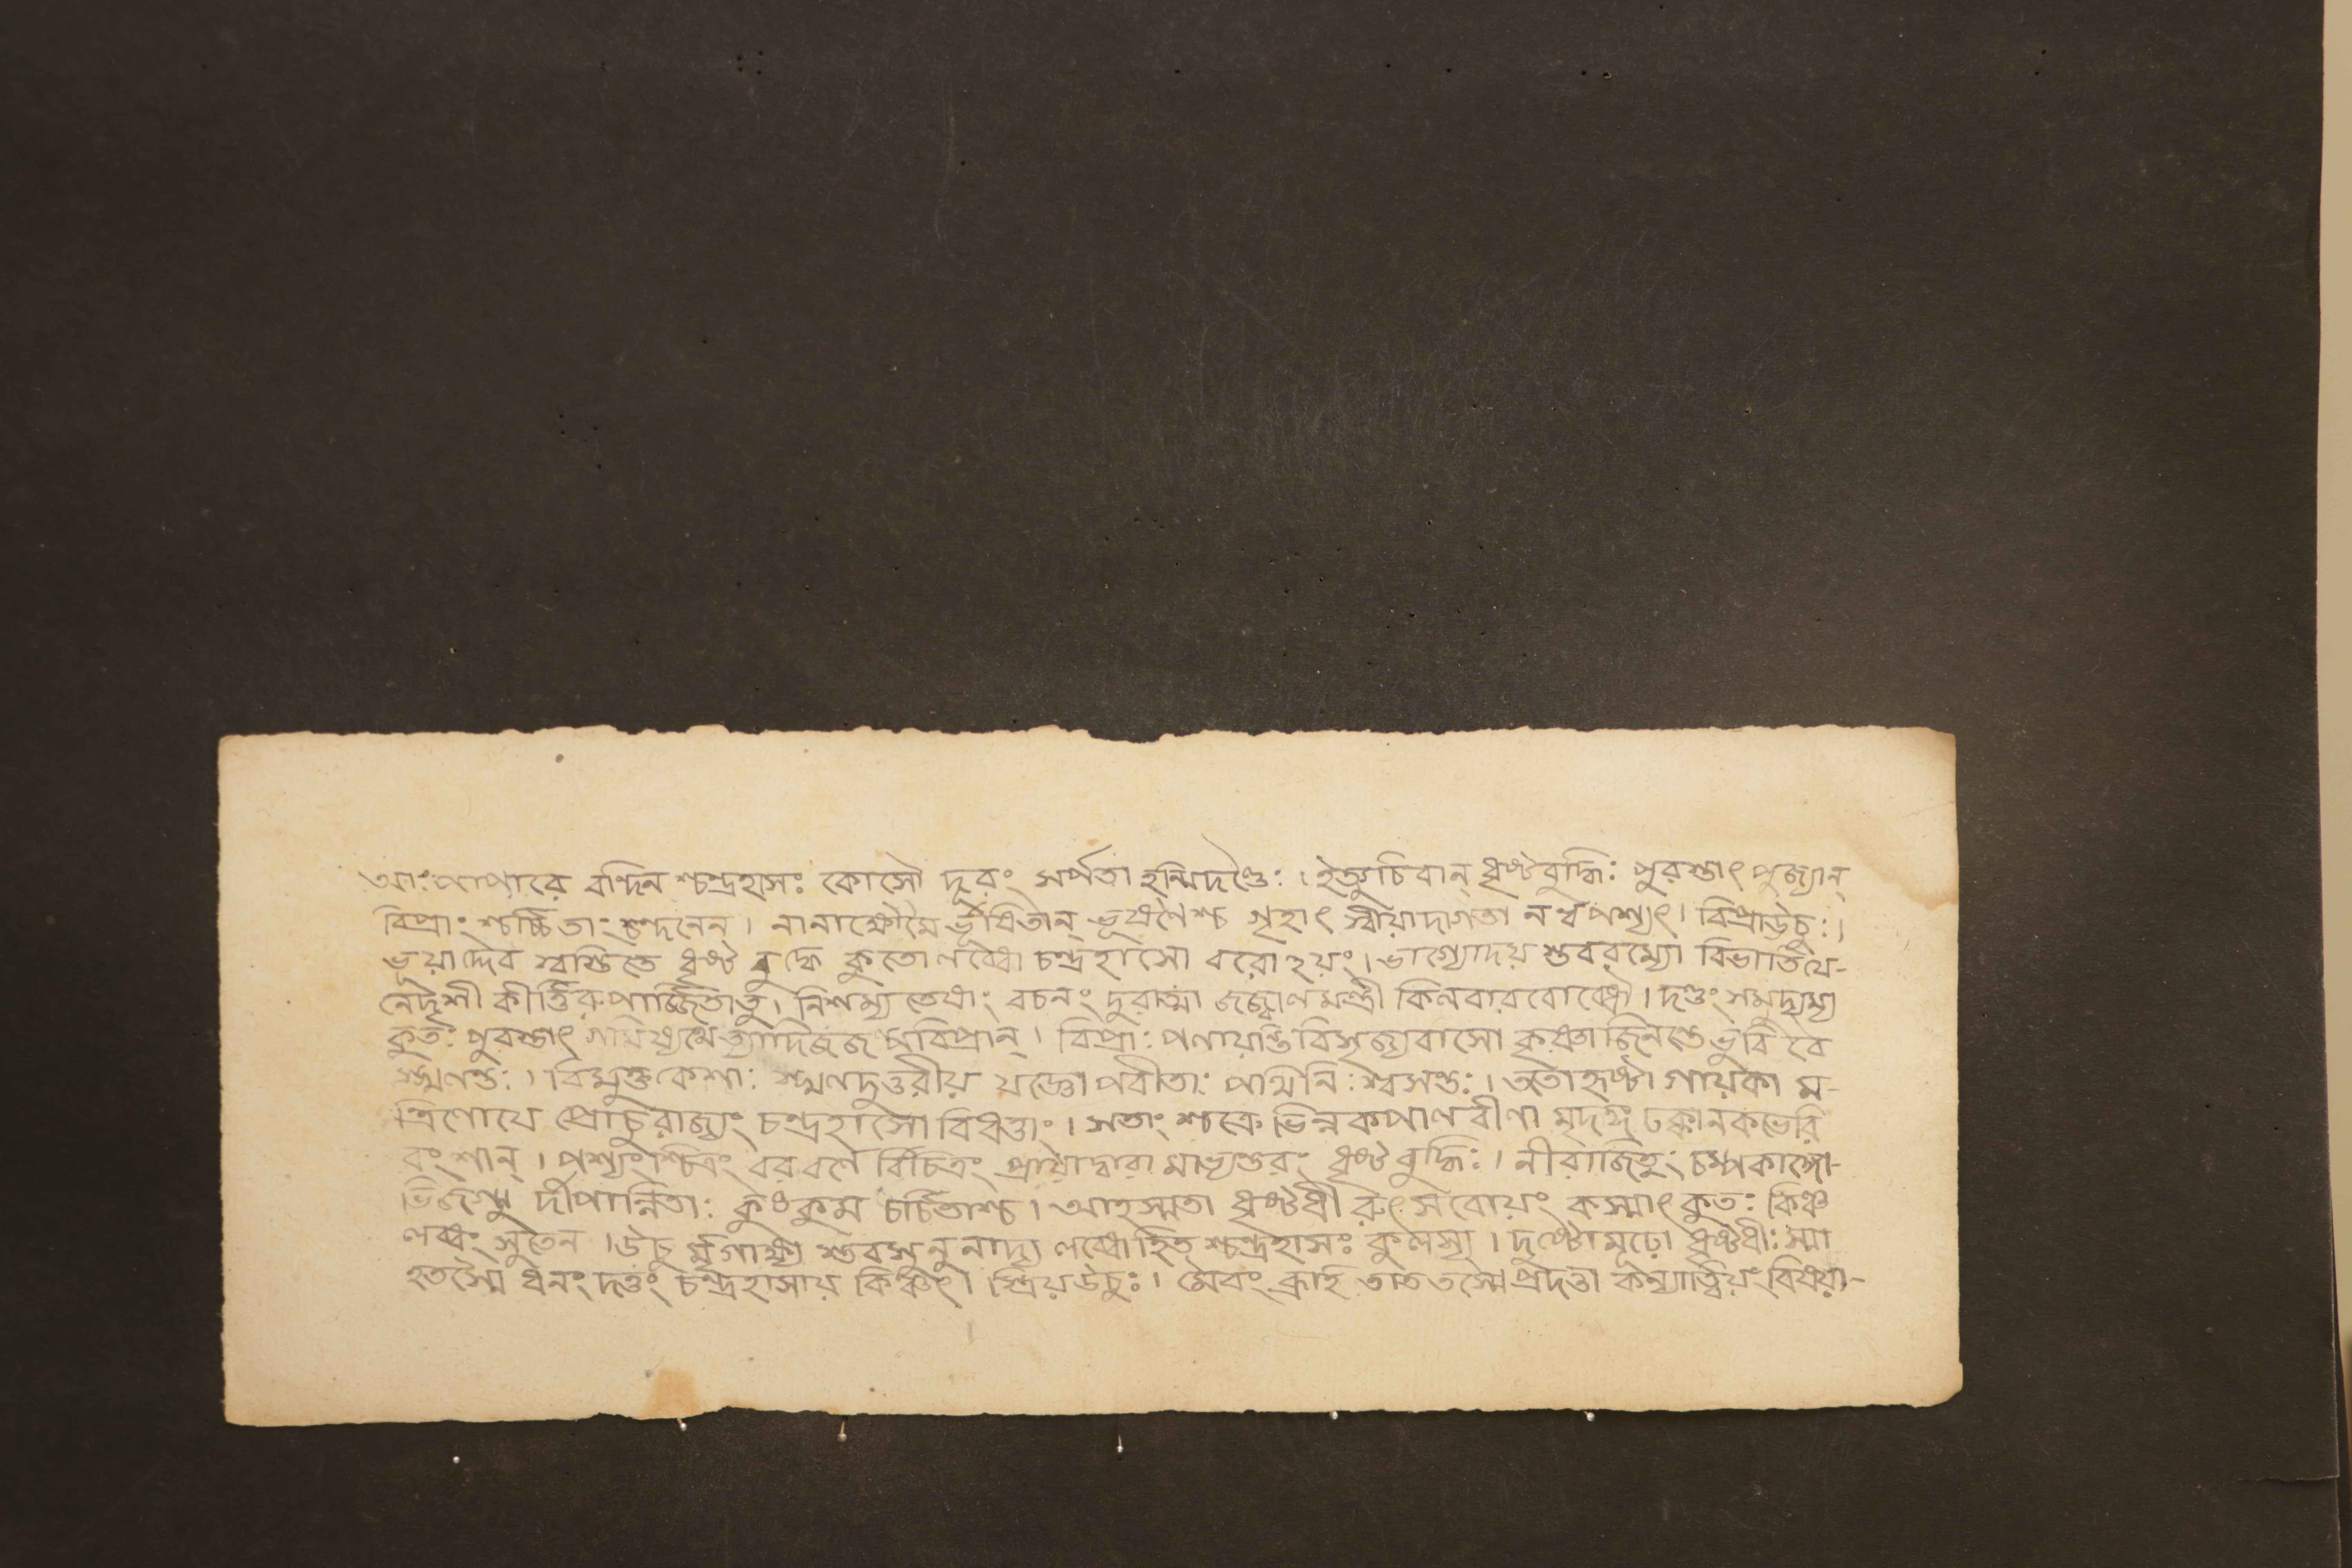 আঃ পাপারে বন্দিন শ্চন্দ্রহাসঃ কোসৌ দূরং সর্পতা হন্মিদণ্ডৈঃ। ইত্যুচিবান্ ধৃষ্টবুদ্ধিঃ পুরস্তাৎ পুজ্যান্
বিপ্রাং শ্চর্চ্চিতাং শ্চন্দনেন্। নানাক্ষৌমৈ র্ভূষিতান্ ভূষণৈশ্চ গৃহাৎ স্বীয়াদাগতা নর্থপশ্যৎ। বিপ্রাউচুঃ।
ভূয়াদ্দেব স্বস্তিতে ধৃষ্ট বুদ্ধে কুতো লব্ধো চন্দ্রহাসো বরো ২য়ং। ভাগ্যোদয় স্তবরম্যো বিভাতিযে-
নেদৃশী কীর্ত্তিরুপার্জ্জিতাতু। নিশম্য তেষাং বচনং দুরাত্মা জজ্বালমন্ত্রী কিলবারবোব্ধৌ। দণ্ডং সমুদ্যম্য
কুতঃ পুরস্তাৎ গমিষ্যথে ত্যাদিজজল্পবিপ্রান্। বিপ্রাঃ পলায়ন্তি বিসৃজ্যবাসো কৃষ্ণাজিনন্তে ভুবি বে
স্খলন্তঃ। বিমুক্তকেশাঃ স্খলদুত্তরীয় যজ্ঞোপবীতাঃ পথিনিঃশ্বসন্তঃ। ততোহৃষ্টা গায়কা ম-
ন্ত্রিণোযে প্রোচুরাজ্যং চন্দ্রহাসো বিধত্তাং। সতাং শ্চক্রে ভিন্নকপাল বীণা মৃদঙ্গ ঢক্কানকভেরি
বংশান্। পশ্যংশ্চিত্রং বরবর্ণে র্বিচিত্রং প্রায়াদ্বারা মাভ্যন্তরং ধৃষ্টবুদ্ধিঃ। নীরাজিতুং চম্পকাঙ্গো-
ভিজগ্মু দীপান্বিতাঃ কুঙ্কুম চর্চিতাশ্চ। আহস্মতা ধৃষ্টধী রুৎসবোয়ং কস্মাৎ কুতঃ কিঞ্চ
লব্ধং সুতেন। উচু র্মৃগাক্ষ্য স্তবসুনুনাদ্য লব্ধোহিত শ্চন্দ্রহাসঃ কুলস্য। দুষ্টোমূঢ়ো ধৃষ্টধীঃ স্মা
হতস্মৈ ধনং দত্তং চন্দ্রহাসায় কিঞ্চিৎ। স্ত্রিয়উচুঃ। মৈবং ব্রূহি তাত তস্মৈ প্রদত্তা কন্যাত্ত্বিয়ং বিষয়া-